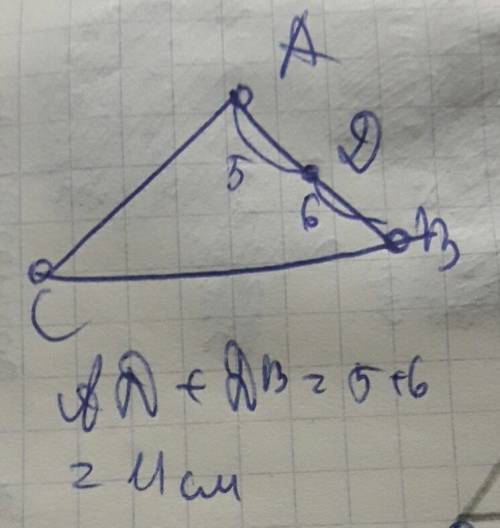 A
D
5
6
B
C
AD + DB = 5+6
= 11 см